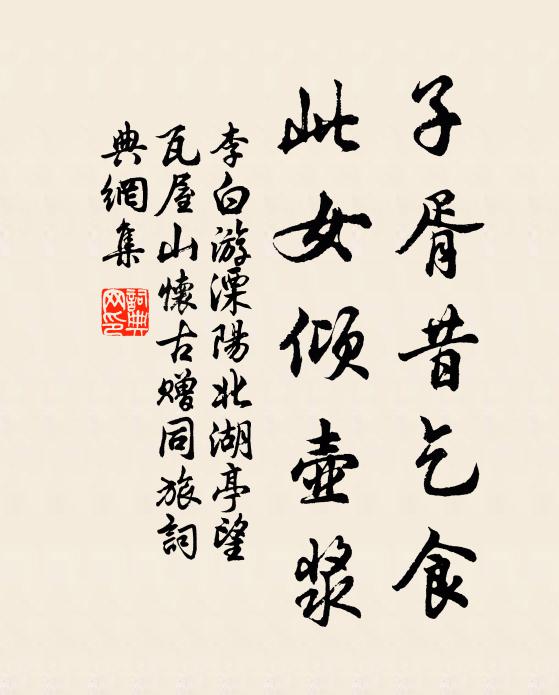 子胥昔乞食
此女倾壶浆
李白游溧陽北湖亭望
瓦屋山懷古贈同旅詞
典網集
詞典
网印